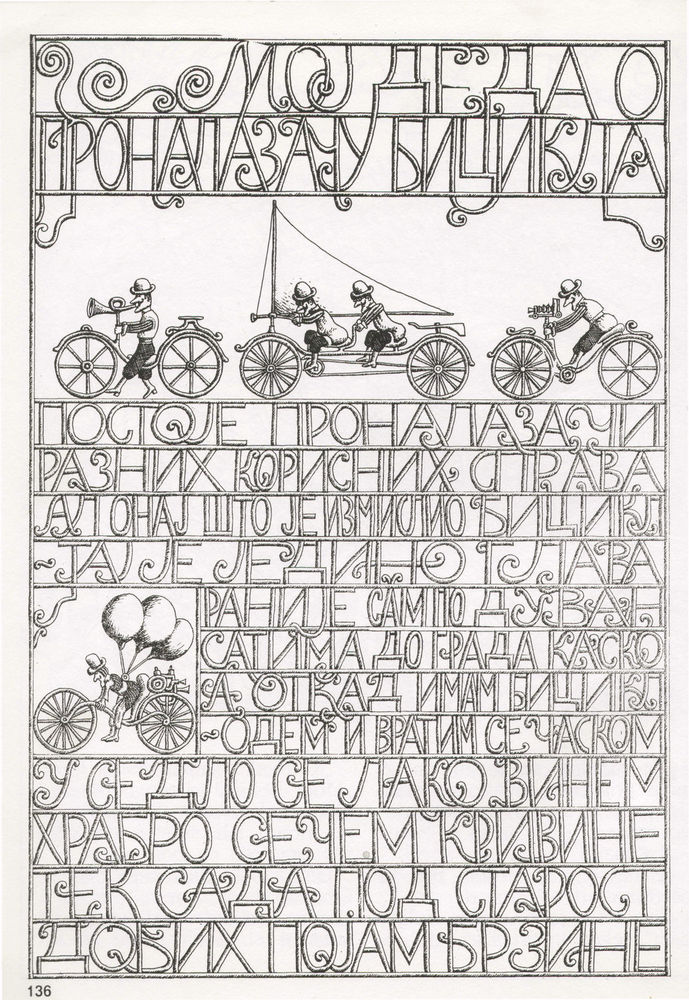 МОЈ ДЕДА О
ПРОНАЛАЗАЧУ БИЦИКЛА
ПОСТОЈЕ ПРОНАЛАЗАЧИ
РАЗНИХ КОРИСНИХ СПРАВА
АЛ ОНАЈ ШТО ЈЕ ИЗМИСЛИО БИЦИКЛ
ТАЈ ЈЕ ЈЕДИНО ГЛАВА
РАНИЈЕ САМ ПО ДУВАН
САТИМА ДО ГРАДА КАСКО
А ОТКАД ИМАМ БИЦИКЛ
ОДЕМ И ВРАТИМ СЕ ЧАСКОМ
У СЕДЛО СЕ ЛАКО ВИНЕМ
ХРАБРО СЕЧЕМ КРИВИНЕ
ТЕК САДА ПОД СТАРОСТ
ДОБИХ ПОЈАМ БРЗИНЕ
136